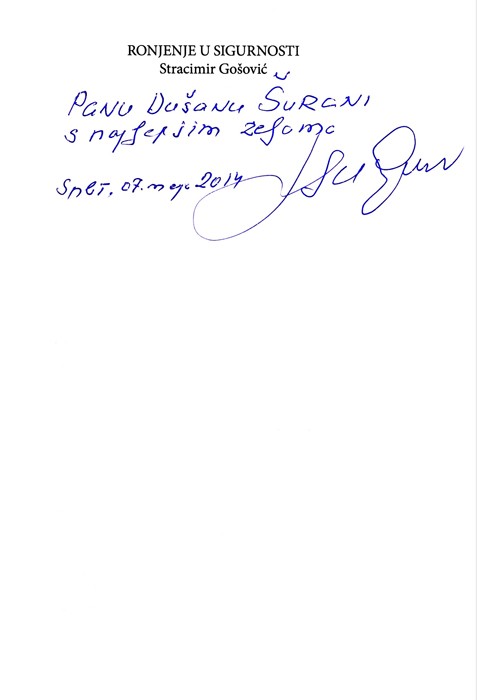 RONJENJE U SIGURNOSTI
Stracimir Gošović
PANU DUŠANU ŠURANI
s najljepšim željama
Split, 07. maja 2014